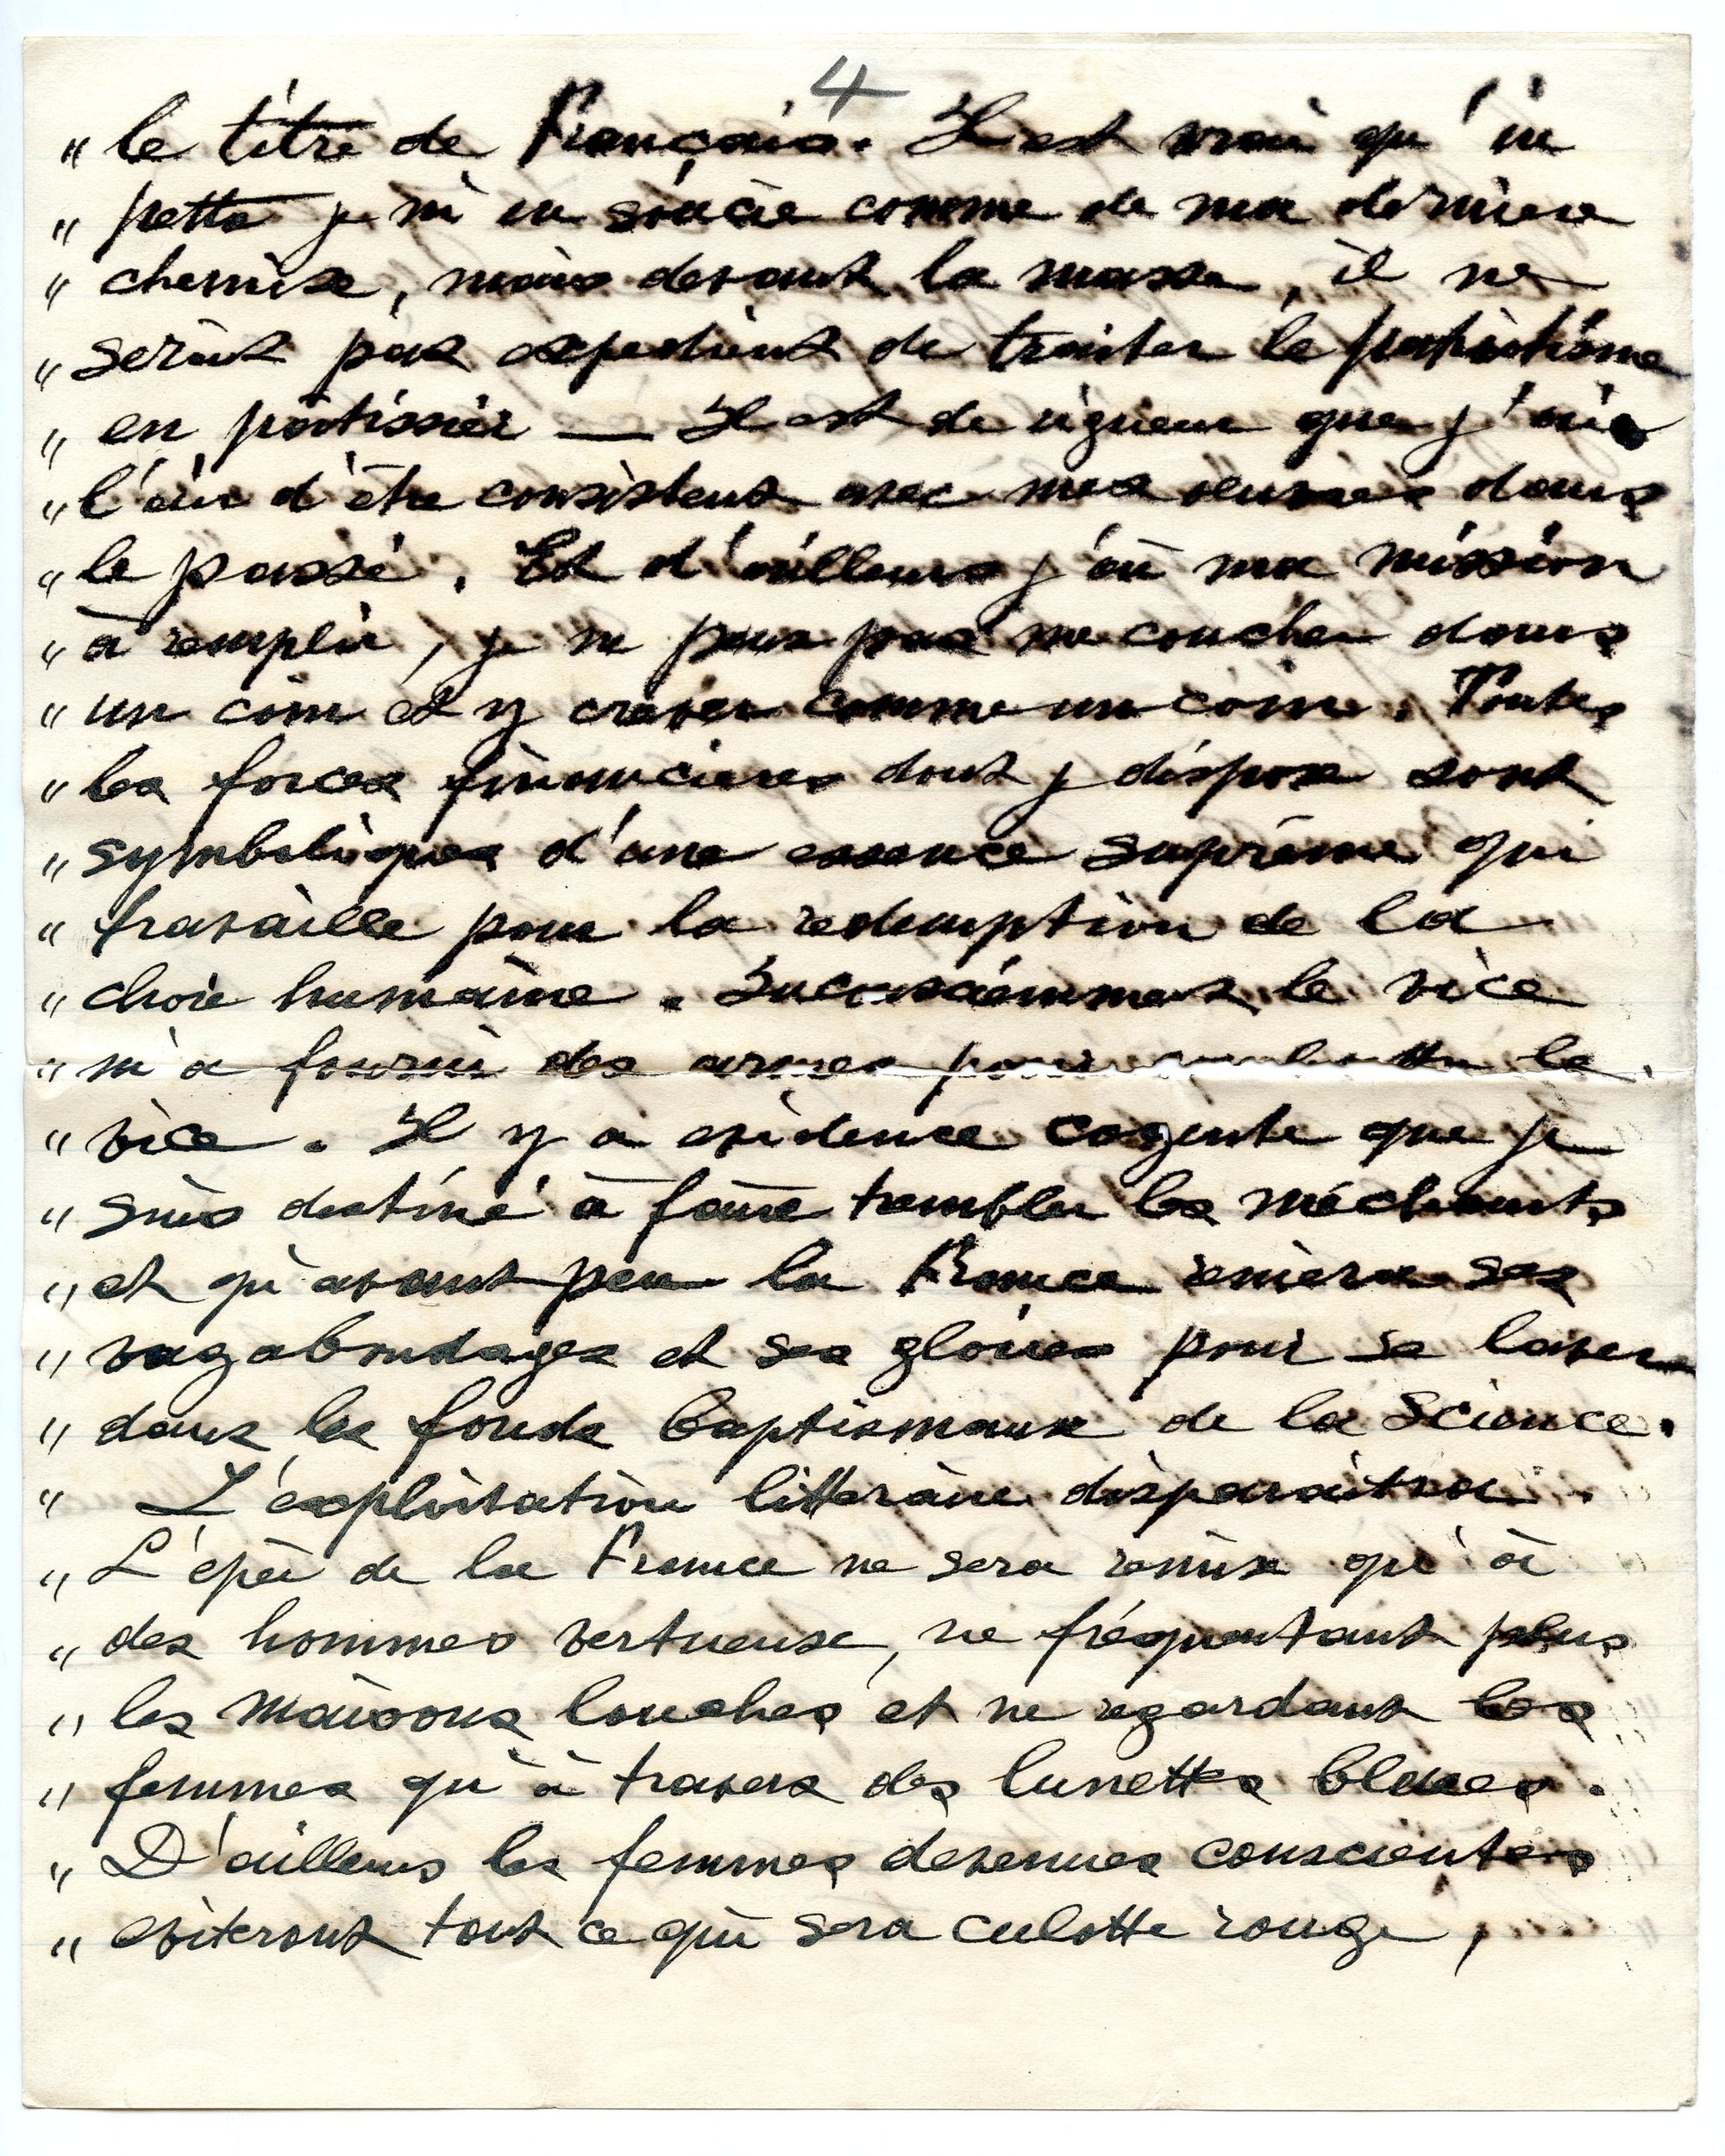 4
" le titre de Français. Il est vrai qu'in
" petto je m'en soucie comme de ma derniere
" chemise, mais devant la masse, il ne
" serait pas expedient de traiter le patriotisme
" en patissier — Il est de rigueur que j'aie
" l'air d'être consistent avec mes dans
" le passé. Et d'ailleurs j'ai ma mission
" à remplir, je ne peux pas me coucher dans
" un coin et y crever comme un coin. Toutes
" les forces financieres dont je dispose sont
" symboliques d'une essence suprême qui
" travaille pour la redemption de la
" chair humaine. Inconsciemment le vice
" m'a fourni des armes pour combattre le
" vice. Il y a evidence cogente que je
" suis destiné à faire trembler les méchants
" et qu'avant peu la France reniera ses
" vagabondages et ses gloires pour se laver
" dans les fonds baptismaux de la Science.
" L'exploitation litteraire disparaitra.
" L'epée de la France ne sera remise qu'à
" des hommes vertueux, ne fréquentant plus
" les maisons louches et ne regardant les
" femmes qu'à travers des lunettes bleues.
" D'ailleurs les femmes devenues conscientes
" eviteront tout ce qui sera culotte rouge,